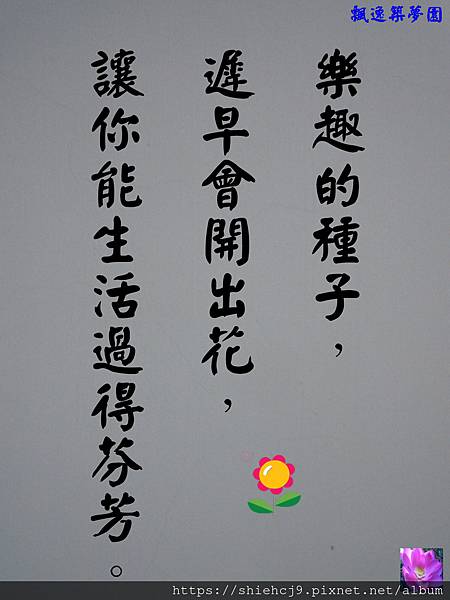 飄逸築夢園
樂趣的種子，
遲早會開出花，
讓你能生活過得芬芳。
https://shiehcj9.pixnet.net/album